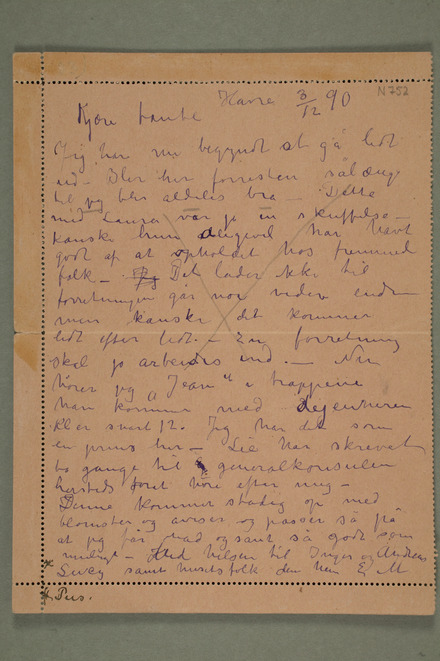 N 752
Havre 3/12 90
Kjære tante
Jeg har nu begyndt at gå lidt
ud – Blir her forresten sålænge
til jeg blir aldeles bra – Dette
med Laura var jo en skuffelse –
kanske hun alligevel har havt
godt af at opholdet hos fremmed
folk – Det lader ikke til
forretningen går noe videre endnu
men kanske det kommer
lidt efter lidt. – En forretning
skal jo arbeides ind. – Nu
hører jeg „Jean" i trappene
han kommer med dejeuneren
Kl er snart 12. Jeg har det som
en prins her – Lie har skrevet
to gange til generalkonsulen
hersteds for at høre efter mig –
Denne kommer stadig op med
blomster og aviser og passer så på
at jeg får mad og sånt så godt som
muligt – hilsen til Inger og Andreas
samt husets folk din hen E M
x Pus.